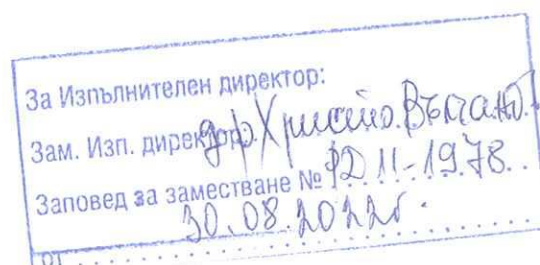 За Изпълнителен директор:
Зам. Изп. директор: д-р Христо
Заповед за заместване № РД 11-1978.
30.08.2022г.
от